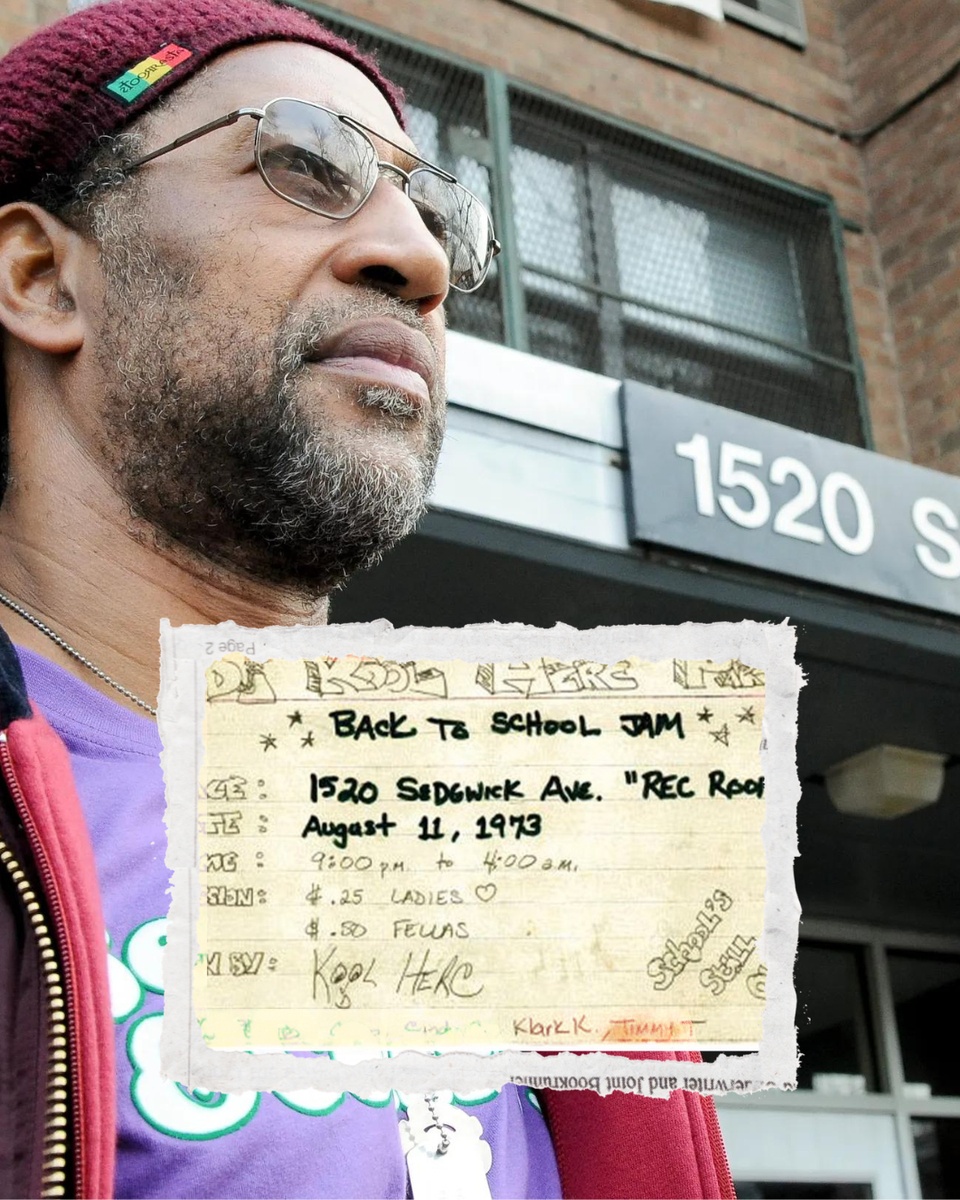 1520 S
Page 2
DJ KOOL HERC PAR
BACK TO SCHOOL JAM
CE: 1520 SEDGWICK AVE. "REC ROOM
TE: August 11, 1973
ME: 9:00 p.m. to 4:00 a.m.
SION: $.25 LADIES ♡
$.50 FELLAS
N BY: KOOL HERC
School's
Still
Cindy C. Klark K., Timmy T
erwriter and Joint Bookrunner